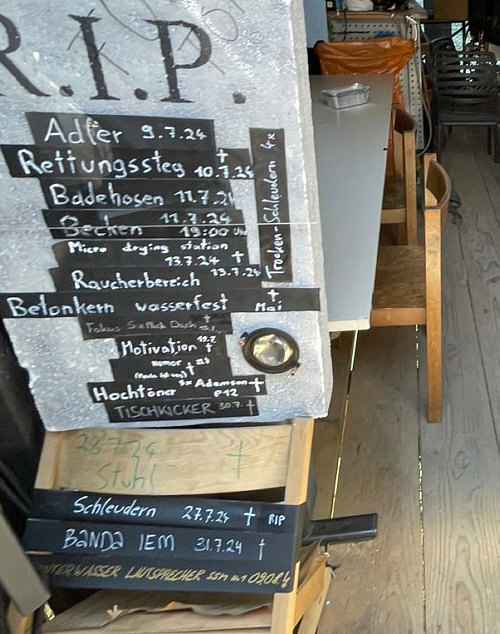 R.I.P.
Adler 9.7.24
Rettungssteg 10.7.24 †
Badehosen 11.7.24
Becken 11.7.24
19:00 Uhr
Trocken-Schleudern 4x
Micro drying station
13.7.24 †
Raucherbereich 13.7.24
Betonkern wasserfest † Mai
Fokus Sixpack Dach
Motivation †
Humor
Hochtöner 5x Adamson †
P12
TISCHKICKER 30.7. †
28.7.24 †
Stuhl
Schleudern 27.7.24 † RIP
BANDA IEM 31.7.24 †
UNTERWASSER LAUTSPRECHER